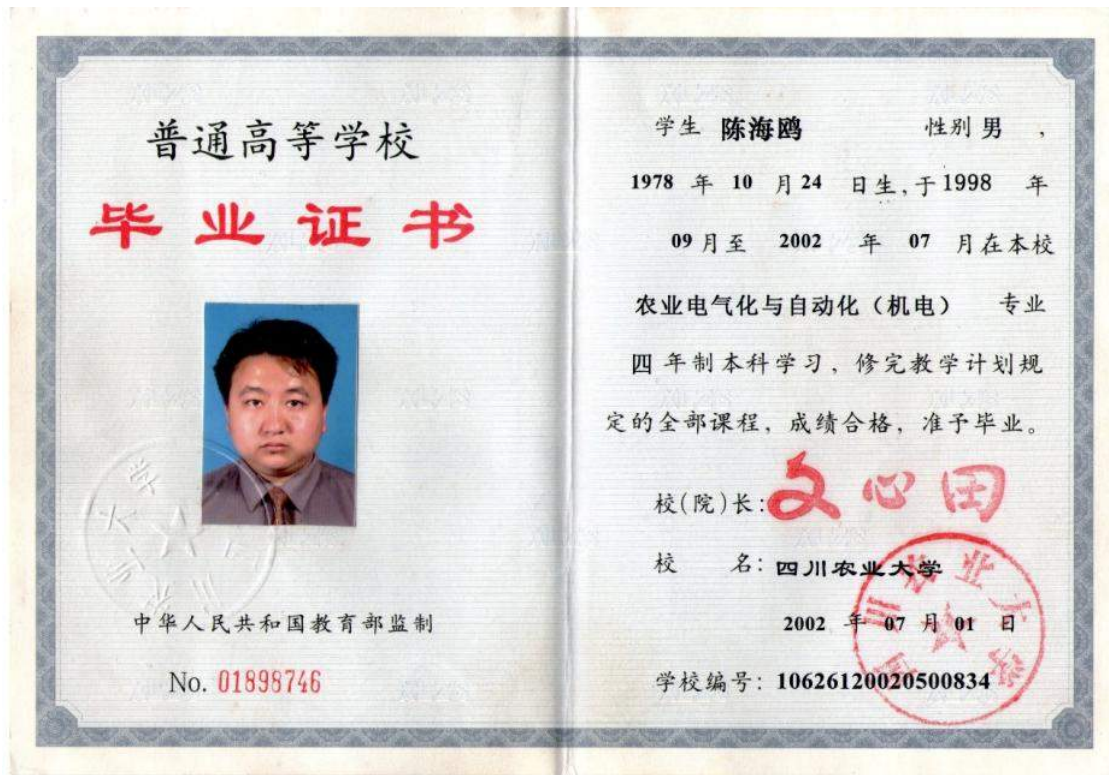 普通高等学校
毕业证书
中华人民共和国教育部监制
No. 01898746
学生 陈海鸥 性别 男 ,
1978 年 10 月 24 日生,于1998 年
09月至 2002 年 07 月在本校
农业电气化与自动化（机电） 专业
四 年制本科学习，修完教学计划规
定的全部课程，成绩合格，准予毕业。
校(院)长：文心田
校 名：四川农业大学
2002 年 07 月 01 日
学校编号：10626120020500834
四川农业大学